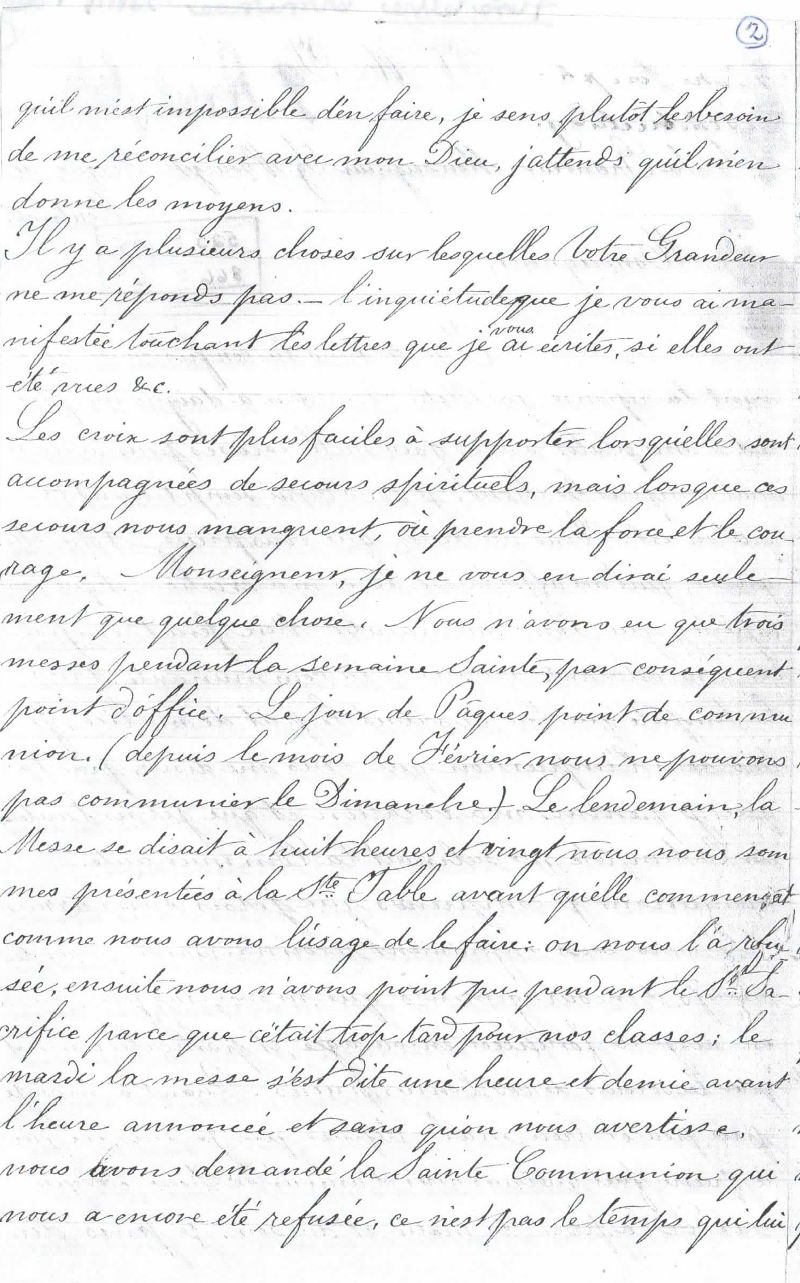 2
qu'il m'est impossible d'en faire, je sens plutôt le besoin
de me réconcilier avec mon Dieu, j'attends qu'il m'en
donne les moyens.
Il y a plusieurs choses sur lesquelles Votre Grandeur
ne me réponds pas. — l'inquiétude que je vous ai ma-
nifestée touchant les lettres que je vous ai écrites, si elles ont
été vues &c.
Les croix sont plus faciles à supporter lorsqu'elles sont
accompagnées de secours spirituels, mais lorsque ces
secours nous manquent, où prendre la force et le cou
rage. Monseigneur, je ne vous en dirai seule-
ment que quelque chose. Nous n'avons eu que trois
messes pendant la semaine Sainte, par conséquent
point d'office. Le jour de Pâques point de commu
nion. (depuis le mois de Février nous ne pouvons
pas communier le Dimanche) Le lendemain, la
Messe se disait à huit heures et vingt nous nous som
mes présentées à la Ste Table avant qu'elle commençat
comme nous avons l'usage de le faire: on nous l'a refu
sée, ensuite nous n'avons point pu pendant le St Sa-
crifice parce que c'était trop tard pour nos classes; le
mardi la messe s'est dite une heure et demie avant
l'heure annoncée et sans qu'on nous avertisse,
nous avons demandé la Sainte Communion qui
nous a encore été refusée, ce n'est pas le temps qui lui